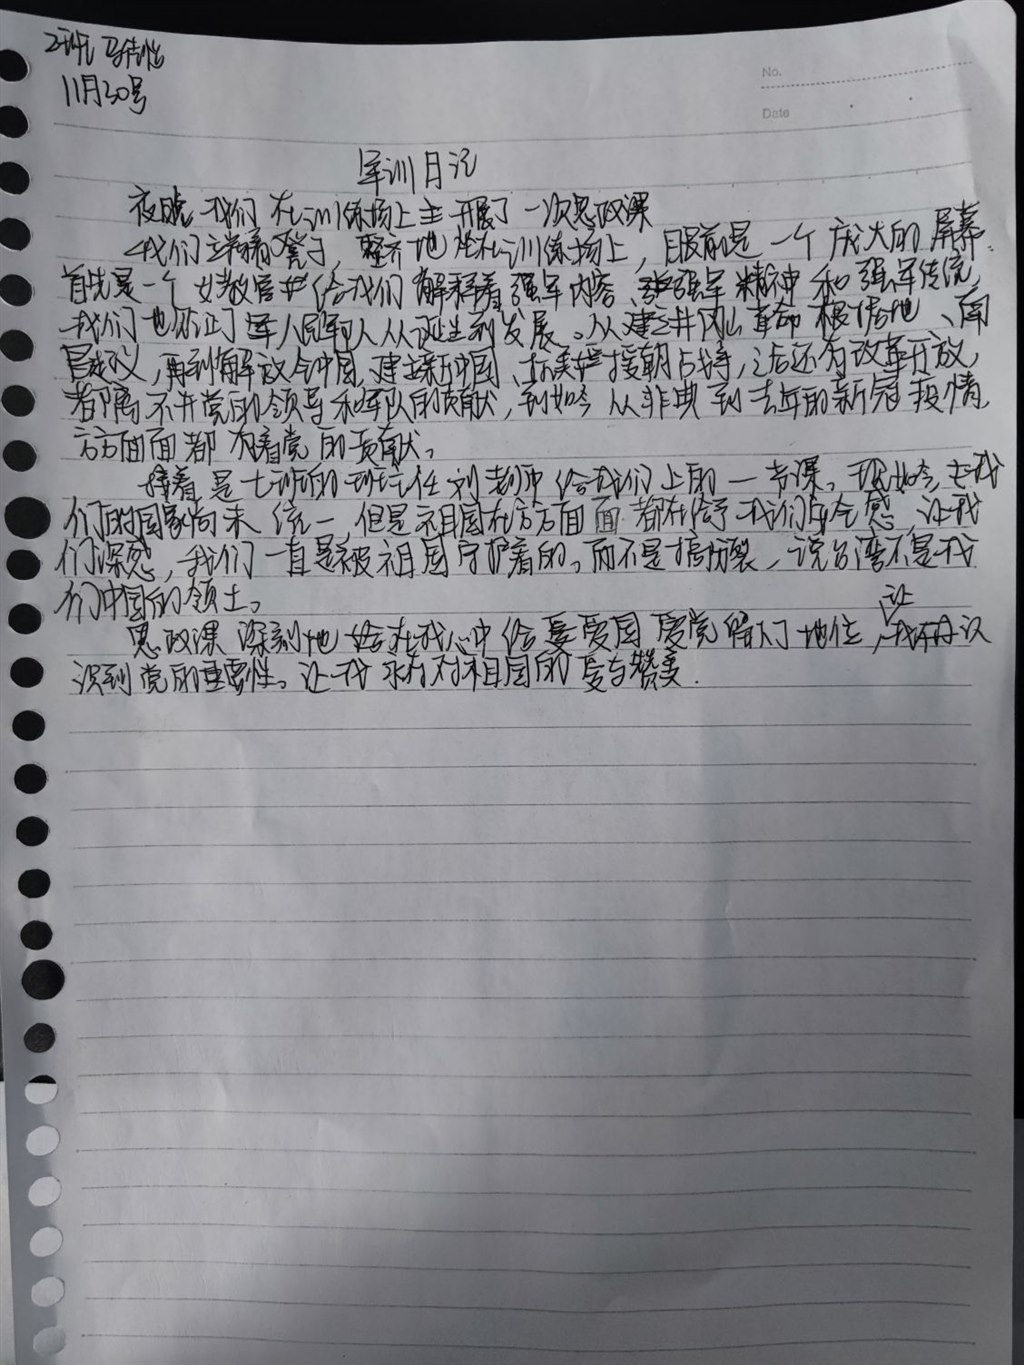 2班
11月30号
No.
Date
军训日记
夜晚 我们在训练场上主开展了一次思政课
我们 着凳子，整齐地坐在训练场上，眼前是一个庞大的屏幕.
首先是一个女教官 给我们解释着强军内容、强军精神和强军传统，
我们也 军人 从诞生到发展。从建立井冈山革命根据地、南
昌 ，再到解放全中国，建立新中国、抗美 援朝 战争，之后还有改革开放，
都离不开党的领导和军队的贡献，到如今从非典到去年的新冠疫情，
方方面面都有着党的贡献。
接着是七班的班主任刘老师给我们上的一节课。现如今 我
们的国家尚未统一，但是祖国在方方面面都在给予我们安全感，让我
们深感，我们一直是被祖国守护着的。而不是搞分裂，说台湾不是我
们中国的领土。
让
思政课深刻地 在我心中 爱国爱党 地位，我 认
识到党的重要性。让我 对祖国的爱与赞美.